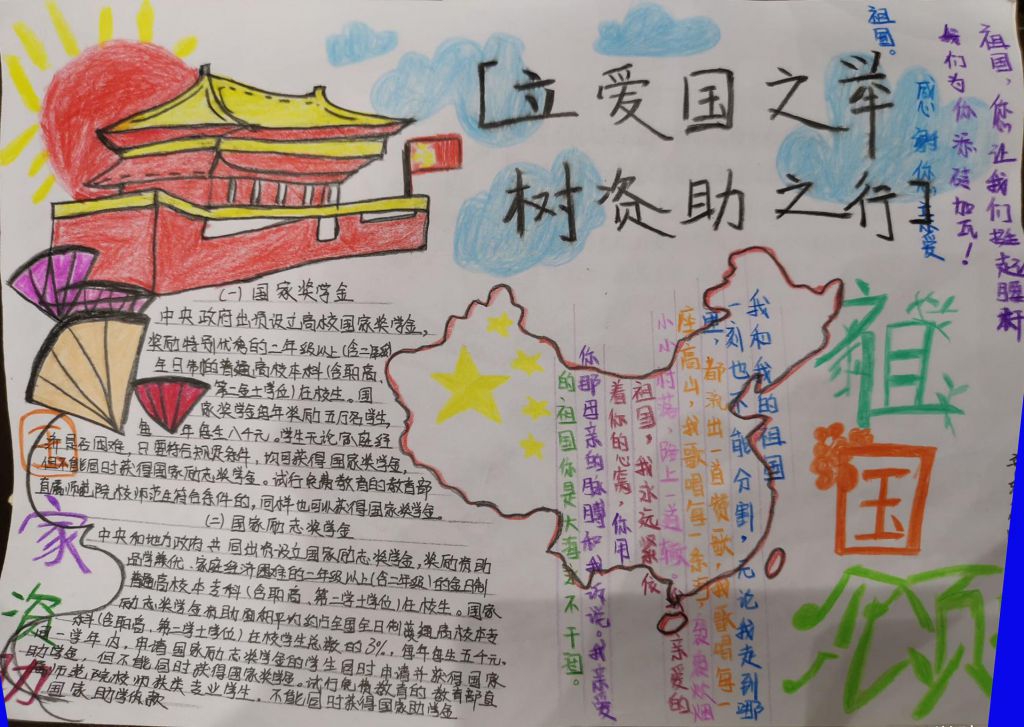 立爱国之举
树资助之行
祖国，您让我们挺起腰杆
我们为你添砖加瓦！
感谢你 亲爱
祖国。
(一) 国家奖学金
中央政府出资设立高校国家奖学金，
奖励特别优秀的二年级以上(含二年级)
全日制普通高校本科(含职高、
第二学士学位)在校生。国
家奖学金每年奖励五万名学生，
每 年每生八千元。学生无论家庭经
济是否困难，只要符合规定条件，均可获得国家奖学金，
但不能同时获得国家励志奖学金。试行免费教育的教育部
直属师范院校师范生符合条件的，同样也可以获得国家奖学金
(二) 国家励志奖学金
中央和地方政府共同出资设立国家励志奖学金，奖励资助
品学兼优、家庭经济困难的二年级以上(含二年级)的全日制
普通高校本专科(含职高、第二学士学位)在校生。国家
励志奖学金资助面相平均约占全国全日制普通高校本专
科(含职高、第二学士学位)在校学生总数的3%，每年每生五千元。
同一学年内，申请国家励志奖学金的学生同时申请并获得国家
助学金，但不能同时获得国家奖学金。试行免费教育的教育部直
属师范院校师范类专业学生，不能同时获得国家励志学金
国家助学贷款
国
家
资
助
我和我的祖国
一刻也不能分割，无论我走到哪
里，都流出一首赞歌，我歌唱每一
座高山，我歌唱每一条河，袅袅炊烟
小小村落，路上一道辙。
亲爱的
祖国，我永远紧依
着你的心窝，你用
你那母亲的脉膊和我诉说。我亲爱
的祖国你是大海永不干涸。
祖
国
颂